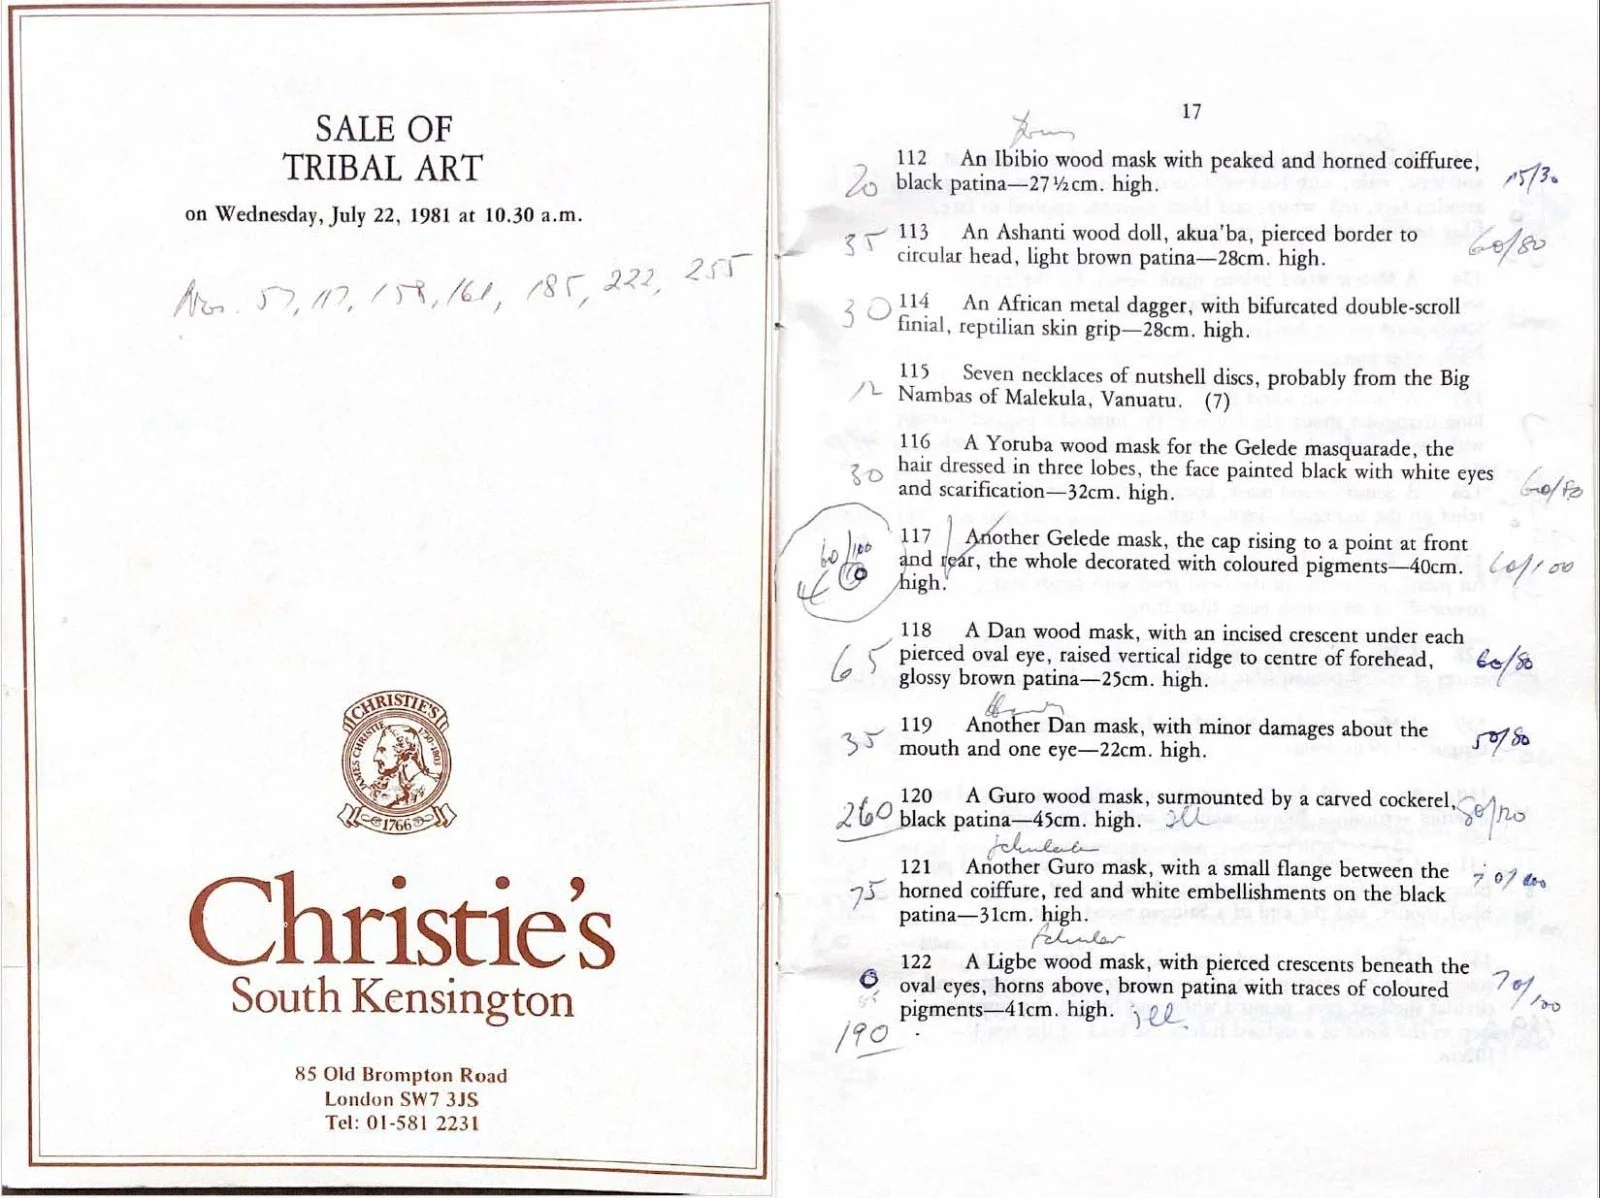 SALE OF
TRIBAL ART
on Wednesday, July 22, 1981 at 10.30 a.m.
Nos. 57, 117, 158, 161, 185, 222, 255
CHRISTIE'S
JAMES CHRISTIE 1730-1803
1766
Christie's
South Kensington
85 Old Brompton Road
London SW7 3JS
Tel: 01-581 2231
17
112 An Ibibio wood mask with peaked and horned coiffuree,
20 black patina—27½cm. high. 15/30
35 113 An Ashanti wood doll, akua'ba, pierced border to 60/80
circular head, light brown patina—28cm. high.
30 114 An African metal dagger, with bifurcated double-scroll
finial, reptilian skin grip—28cm. high.
115 Seven necklaces of nutshell discs, probably from the Big
12 Nambas of Malekula, Vanuatu. (7)
116 A Yoruba wood mask for the Gelede masquarade, the
30 hair dressed in three lobes, the face painted black with white eyes
and scarification—32cm. high. 60/80
117 Another Gelede mask, the cap rising to a point at front
60/100 and rear, the whole decorated with coloured pigments—40cm. 60/100
high.
118 A Dan wood mask, with an incised crescent under each
65 pierced oval eye, raised vertical ridge to centre of forehead, 60/80
glossy brown patina—25cm. high.
119 Another Dan mask, with minor damages about the
35 mouth and one eye—22cm. high. 50/80
120 A Guro wood mask, surmounted by a carved cockerel, 80/120
260 black patina—45cm. high. ill
121 Another Guro mask, with a small flange between the 70/100
75 horned coiffure, red and white embellishments on the black
patina—31cm. high.
122 A Ligbe wood mask, with pierced crescents beneath the
oval eyes, horns above, brown patina with traces of coloured 70/100
pigments—41cm. high. ill
190